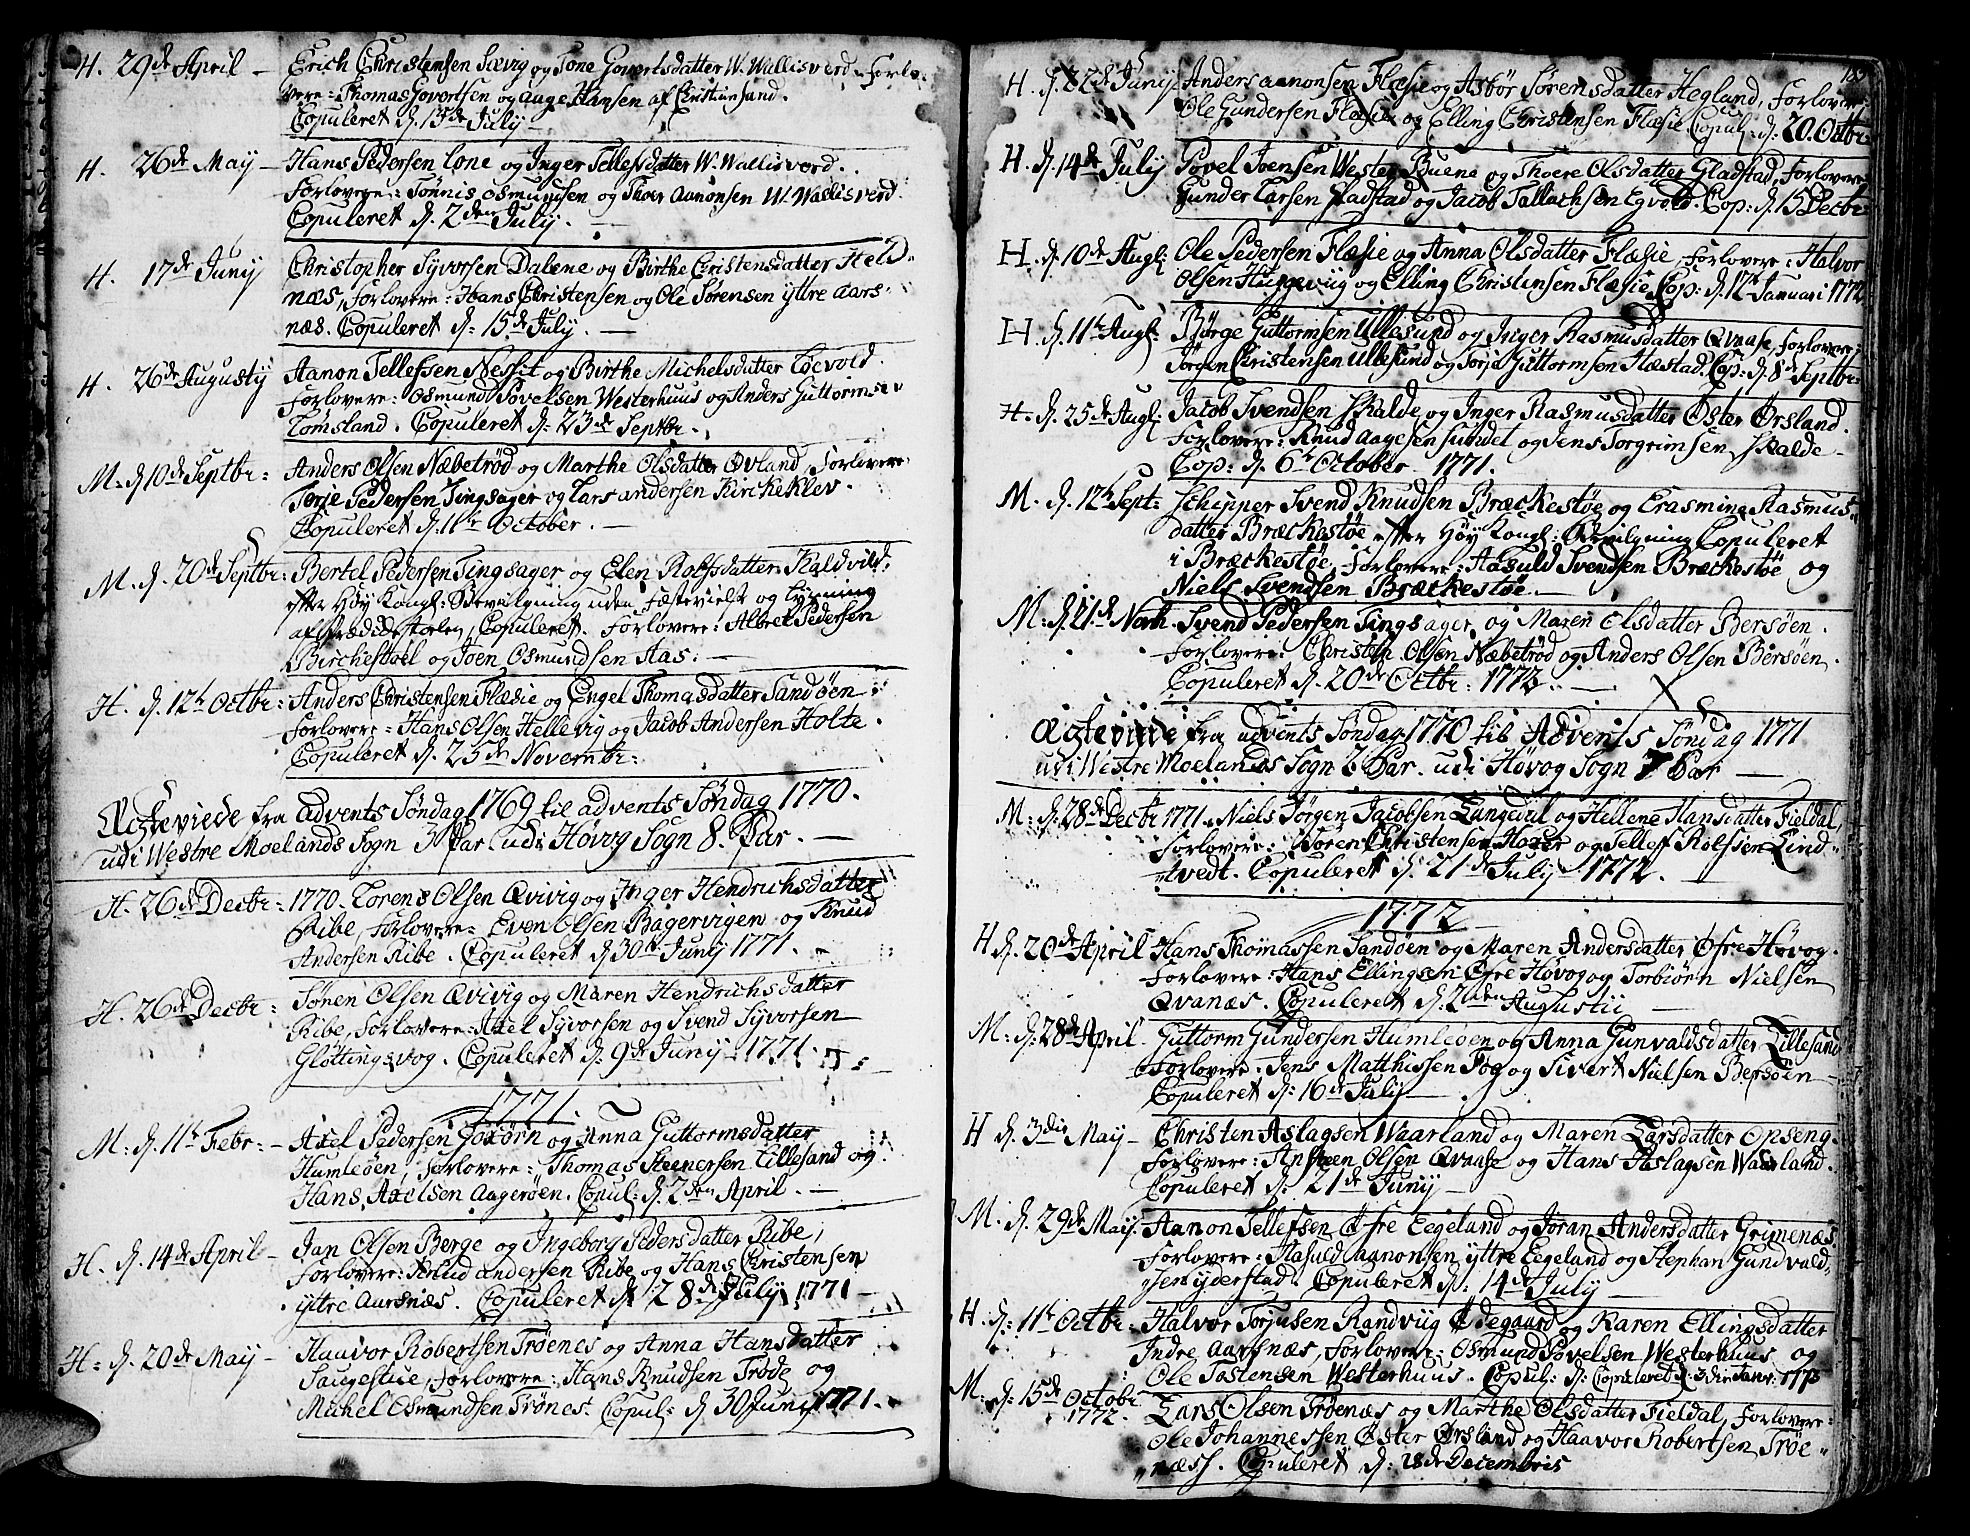 H. 29de April – Erich Christensen Sævig og Tone Govertsdatter W. Wallisverd. Forlo-
vere: Thomas Govertsen og Aage Hansen af Christiansand.
Copuleret d. 13de July –
H. 26de May – Hans Pedersen Lone og Inger Tellefsdatter W. Wallisverd.
Forlovere: Tönnis Osmundsen og Thoer Aanonsen W. Wallisverd.
Copuleret d. 2den July. –
H. 17de Junij Christopher Syvorsen Dalene og Birthe Christensdatter Held-
næs, Forlovere: Hans Christensen og Ole Sørensen yttre Aars-
næs. Copuleret d. 15de July. –
H. 26de Augusty Aanon Tellefsen Nessit og Birthe Michelsdatter Løevold.
Forlovere: Osmund Povelsen Westerhuus og Anders Guttormsen
Tømsland. Copuleret d: 23de Septbr.
M. d 10de Septbr: Anders Olsen Næbetrød og Marthe Olsdatter Øvland, Forlovere
Torje Pedersen Tingsager og Lars Andersen Kirkeklev.
Copuleret d. 11te October. –
M. d. 20de Septbr: Bertel Pedersen Tingsager og Elen Rolfsdatter Kaldvild,
efter Høy Kongl: Bevilgning uden Fæstevielse og Lysning
af Prædickestolen, Copuleret. Forlovere: Albret Pedersen
Birchestoel og Joen Osmundsen Aas. –
H. d. 12te Octbr: Anders Christensen Flæsie og Engel Thomasdatter Sandøen
Forlovere: Hans Olsen Hellevig og Jacob Andersen Holte.
Copuleret d. 25de Novembr:
Ægteviede fra Advents Søndag 1769 til Advents Søndag 1770.
udi Westre Moelands Sogn 3 Par udi Høvog Sogn 8. Par. –
H. 26de Decbr: 1770. Lorens Olsen Qvivig og Inger Hendrichsdatter
Ribe, Forlovere: Even Olsen Bagervigen og Knud
Andersen Ribe. Copuleret d. 30te Junij 1771.
H. 26de Decbr: Sønen Olsen Qvivig og Maren Hendrichsdatter
Ribe, Forlovere: Axel Syvorsen og Svend Syvorsen
Gløttingsvog. Copuleret d. 9de Junij 1771.
1771.
M: d. 11te Febr: – Axel Pedersen Goxörn og Anna Guttormsdatter
Humleøen, Forlovere: Thomas Stenersen Lillesand og
Hans Axelsen Aagerøen. Copul: d. 2den April. –
H. d. 14de April – Jan Olsen Berge og Ingeborg Pedersdatter Ribe,
Forlovere: Knud Andersen Ribe og Hans Christensen
yttre Aarsnæs. Copuleret d 28de July 1771 –
H: d. 20de May – Haavor Robertsen Trøenes og Anna Hansdatter
Saugestue, Forlovere: Hans Knudsen Trøde og
Michel Osmundsen Trönes. Copul: d 30 Junij 1771.
H. d. 22de Junij Anders Aanonsen Flæsie og Asbör Sørensdatter Hegland, Forlovere:
Ole Gundersen Flæsie og Elling Christensen Flæsie Copul: d: 20. Octbr
H. d. 14de July Povel Joensen Wester Buene og Thoere Olsdatter Gladstad, Forlovere
Gunder Larsen Fladstad og Jacob Tallachsen Egvold. Cop: d. 15 Decbr
H. d. 10de Augl: Ole Pedersen Flæsie og Anna Olsdatter Flæsie, Forlovere: Halvor
Olsen Huggeviig og Elling Christensen Flæsie, Cop: d. 12te Januari 1772
H d. 11te Augl: Børge Guttormsen Ullesund og Inger Rasmusdatter Qvaase, Forlovere:
Jörgen Christensen Ullesund og Torje Guttormsen Hæstad. Cop: d. 8de Septbr:
H. d. 25de Augl: Jacob Svendsen Skalde og Inger Rasmusdatter Öster Örsland.
Forlovere: Knud Aagesen Sundet og Jens Torgrimsen Skalde –
Cop: d. 6te October 1771.
M. d. 12te Sept: Schipper Svend Knudsen Bræckestøe og Erasmina Rasmus-
datter Bræckestøe efter Høy Kongl: Bevilgning Copuleret
i Bræckestøe, Forlovere: Aasuld Svendsen Bræckestøe og
Niels Svendsen Bræckestøe. –
M: d. 21de Novb. Svend Pedersen Tingsager og Maren Elsdatter Bersøen.
Forlovere: Christen Olsen Næbetrød og Anders Olsen Bersøen.
Copuleret d. 20de Octbr: 1772. –
Ægteviede fra Advents Søndag 1770 til Advents Søndag 1771
udi Westre Moelands Sogn 3 Par. udi Høvog Sogn 7 Par –
M: d: 28de Decbr 1771. Niels Jörgen Jacobsen Langedal og Hellene Hansdatter Fieldal,
Forlovere: Søren Christensen Hover og Tellef Rolfsen Lind-
tvedt. Copuleret d. 21de July 1772.
1772
H d. 20de April Hans Thomassen Sandøen og Maren Andersdatter Øfre Høvog.
Forlovere: Hans Ellingsen Øfre Høvog og Torbiørn Nielsen
Qvanæs. Copuleret d. 2den Augustii –
M: d: 28de April. Guttorm Gundersen Humleøen og Anna Gunvaldsdatter Lillesand
Forlovere: Jens Matthissen Fog og Sivert Nielsen Bersøen –
Copuleret d: 16de July –
H d. 3die May – Christen Aslagsen Waarland og Maren Larsdatter Opseng.
Forlovere: Ansteen Olsen Qvaase og Hans Aslagsen Waarland.
Copuleret d: 21de Junij –
M: d. 29de May. Aanon Tellefsen Øfre Eegeland og Jöran Andersdatter Grimenæs
Forlovere: Aasuld Aanonsen yttre Eegeland og Stephan Gundvald-
sen yderstad. Copuleret d: 14de July –
H. d. 11te Octbr: Halvor Torjusen Randviig Ødegaard og Karen Ellingsdatter
Indre Aarsnæs, Forlovere: Osmund Povelsen Westerhuus og
Ole Tostensen Westerhuus. Copul: d: Copuleret d. 3die Janv: 1773
M: d: 15de Octobr
1772. Lars Olsen Trøenæs og Marthe Olsdatter Fieldal, Forlovere:
Ole Johannessen Öster Örsland og Haavor Robertsen Tröe-
næss. Copuleret d: 28de Decembris